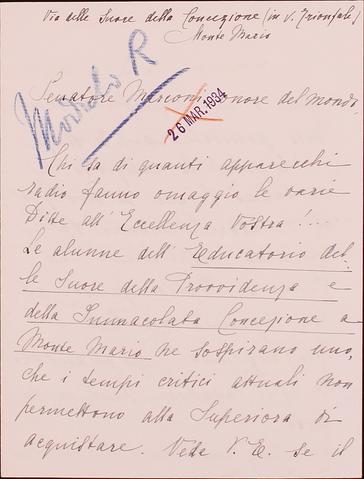 Via delle Suore della Concezione (in V. Trionfale)
Monte Mario
Modulo R
Senatore Marconi, onore del mondo,
26 MAR. 1934
Chi sa di quanti apparecchi
radio fanno omaggio le varie
Ditte all'Eccellenza Vostra!...
Le alunne dell'Educatorio del
le Suore della Provvidenza e
della Immacolata Concezione a
Monte Mario ne sospirano uno,
che i tempi critici attuali non
permettono alla Superiora di
acquistare. Veda V. E. se il